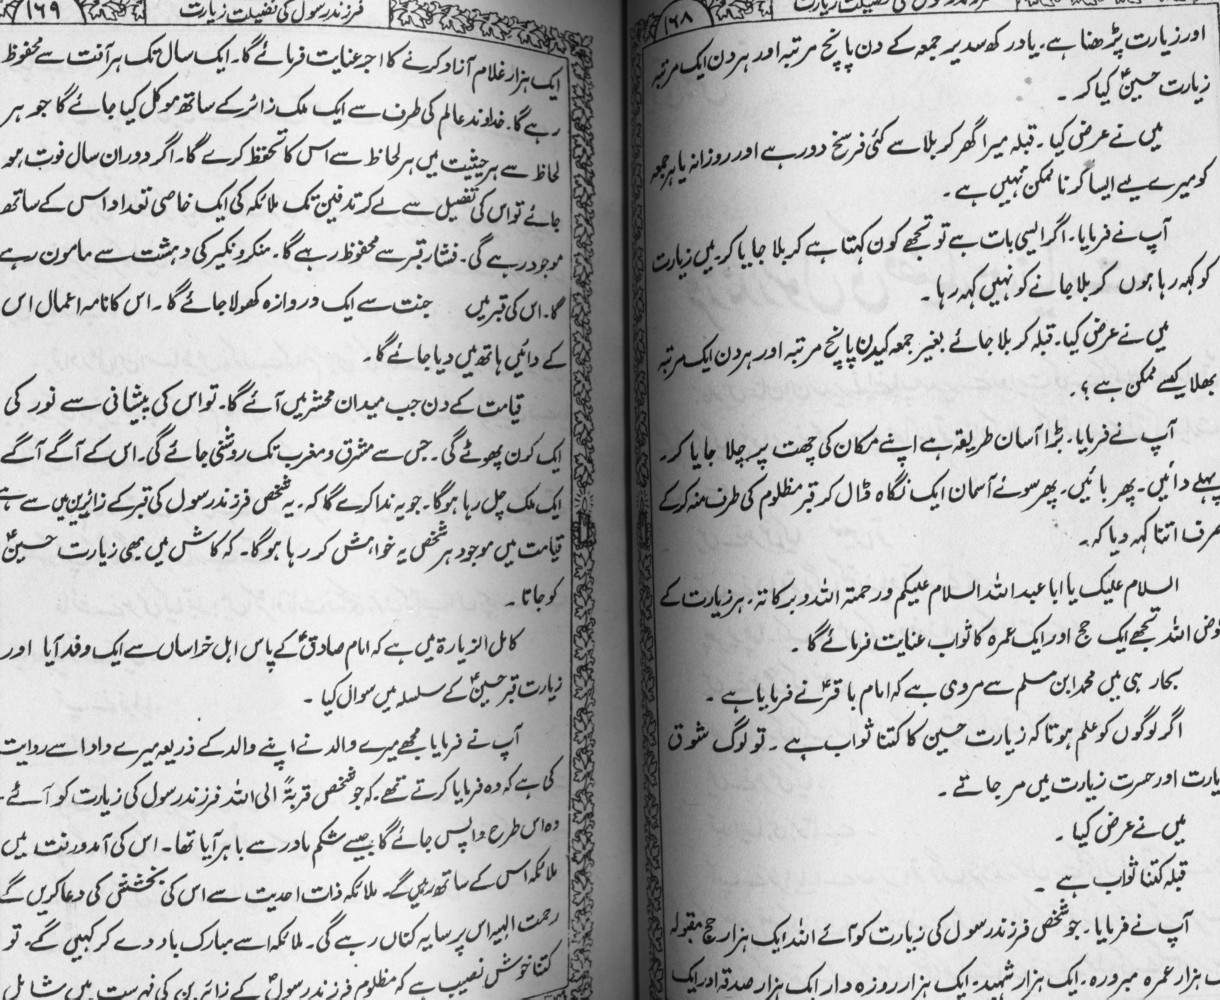 ۱۶۸
اور زیارت پڑھنا ہے۔ یاد رکھ سدیر جمعہ کے دن پانچ مرتبہ اور ہر دن ایک مرتبہ
زیارت حسینؑ کیا کر ۔
میں نے عرض کیا ۔ قبلہ میرا گھر کربلا سے کئی فرسخ دور ہے اور روزانہ یا ہر جمعہ
کو میرے لیے ایسا کرنا ممکن نہیں ہے ۔
آپ نے فرمایا ۔ اگر ایسی بات ہے تو تجھے کون کہتا ہے کربلا جایا کر ۔ میں زیارت
کو کہہ رہا ہوں کربلا جانے کو نہیں کہہ رہا ۔
میں نے عرض کیا ۔ قبلہ کربلا جائے بغیر جمعہ کیدن پانچ مرتبہ اور ہر دن ایک مرتبہ
بھلا کیسے ممکن ہے ؟ ۔
آپ نے فرمایا ۔ بڑا آسان طریقہ ہے اپنے مکان کی چھت پر چلا جایا کر ۔
پہلے دائیں ۔ پھر بائیں ۔ پھر سوئے آسمان ایک نگاہ ڈال کر قبر مظلوم کی طرف منہ کر کے
صرف اتنا کہہ دیا کر ۔
السلام علیک یا ابا عبداللہ السلام علیکم ورحمتہ اللہ وبرکاتہ ۔ ہر زیارت کے
عوض اللہ تجھے ایک حج اور ایک عمرہ کا ثواب عنایت فرمائے گا ۔
بحار ہی میں محمد ابن مسلم سے مروی ہے کہ امام باقرؑ نے فرمایا ہے ۔
اگر لوگوں کو علم ہوتا کہ زیارت حسین کا کتنا ثواب ہے ۔ تو لوگ شوق
زیارت اور حسرت زیارت میں مر جاتے ۔
میں نے عرض کیا ۔
قبلہ کتنا ثواب ہے ۔
آپ نے فرمایا ۔ جو شخص فرزند رسول کی زیارت کو آئے اللہ ایک ہزار حج مقبولہ
ایک ہزار عمرہ مبرورہ ۔ ایک ہزار شہید ۔ ایک ہزار روزہ دار ایک ہزار صدقہ اور ایک
فرزند رسول کی فضیلت زیارت
۱۶۹
ایک ہزار غلام آزاد کرنے کا اجر عنایت فرمائے گا ۔ ایک سال تک ہر آفت سے محفوظ
رہے گا ۔ خداوند عالم کی طرف سے ایک ملک زائر کے ساتھ موکل کیا جائے گا جو ہر
لحاظ سے ہر حیثیت میں ہر لحاظ سے اس کا تحفظ کرے گا ۔ اگر دوران سال فوت ہو
جائے تو اس کی تغسیل سے لے کر تدفین تک ملائکہ کی ایک خاصی تعداد اس کے ساتھ
موجود رہے گی ۔ فشار قبر سے محفوظ رہے گا ۔ منکر و نکیر کی دہشت سے مامون رہے
گا ۔ اس کی قبر میں جنت سے ایک دروازہ کھولا جائے گا ۔ اس کا نامہ اعمال اس
کے دائیں ہاتھ میں دیا جائے گا ۔
قیامت کے دن جب میدان محشر میں آئے گا ۔ تو اس کی پیشانی سے نور کی
ایک کرن پھوٹے گی ۔ جس سے مشرق و مغرب تک روشنی جائے گی ۔ اس کے آگے آگے
ایک ملک چل رہا ہو گا ۔ جو یہ ندا کرے گا کہ ۔ یہ شخص فرزند رسول کی قبر کے زائرین میں سے ہے
قیامت میں موجود ہر شخص یہ خواہش کر رہا ہو گا ۔ کہ کاش میں بھی زیارت حسینؑ
کو جاتا ۔
کامل الزیارۃ میں ہے کہ امام صادقؑ کے پاس اہل خراساں سے ایک وفد آیا اور
زیارت قبر حسینؑ کے سلسلہ میں سوال کیا ۔
آپ نے فرمایا مجھے میرے والد نے اپنے والد کے ذریعہ میرے دادا سے روایت
کی ہے کہ وہ فرمایا کرتے تھے ۔ کہ جو شخص قربۃً الی اللہ فرزند رسول کی زیارت کو آئے ۔
وہ اس طرح واپس جائے گا جیسے شکم مادر سے باہر آیا تھا ۔ اس کی آمد و رفت میں
ملائکہ اس کے ساتھ رہیں گے ۔ ملائکہ ذات احدیت سے اس کی بخشش کی دعا کریں گے
رحمت الہیہ اس پر سایہ کناں رہے گی ۔ ملائکہ اسے مبارک باد دے کر کہیں گے ۔ تو
کتنا خوش نصیب ہے کہ مظلوم فرزند رسولؐ کے زائرین کی فہرست میں شامل